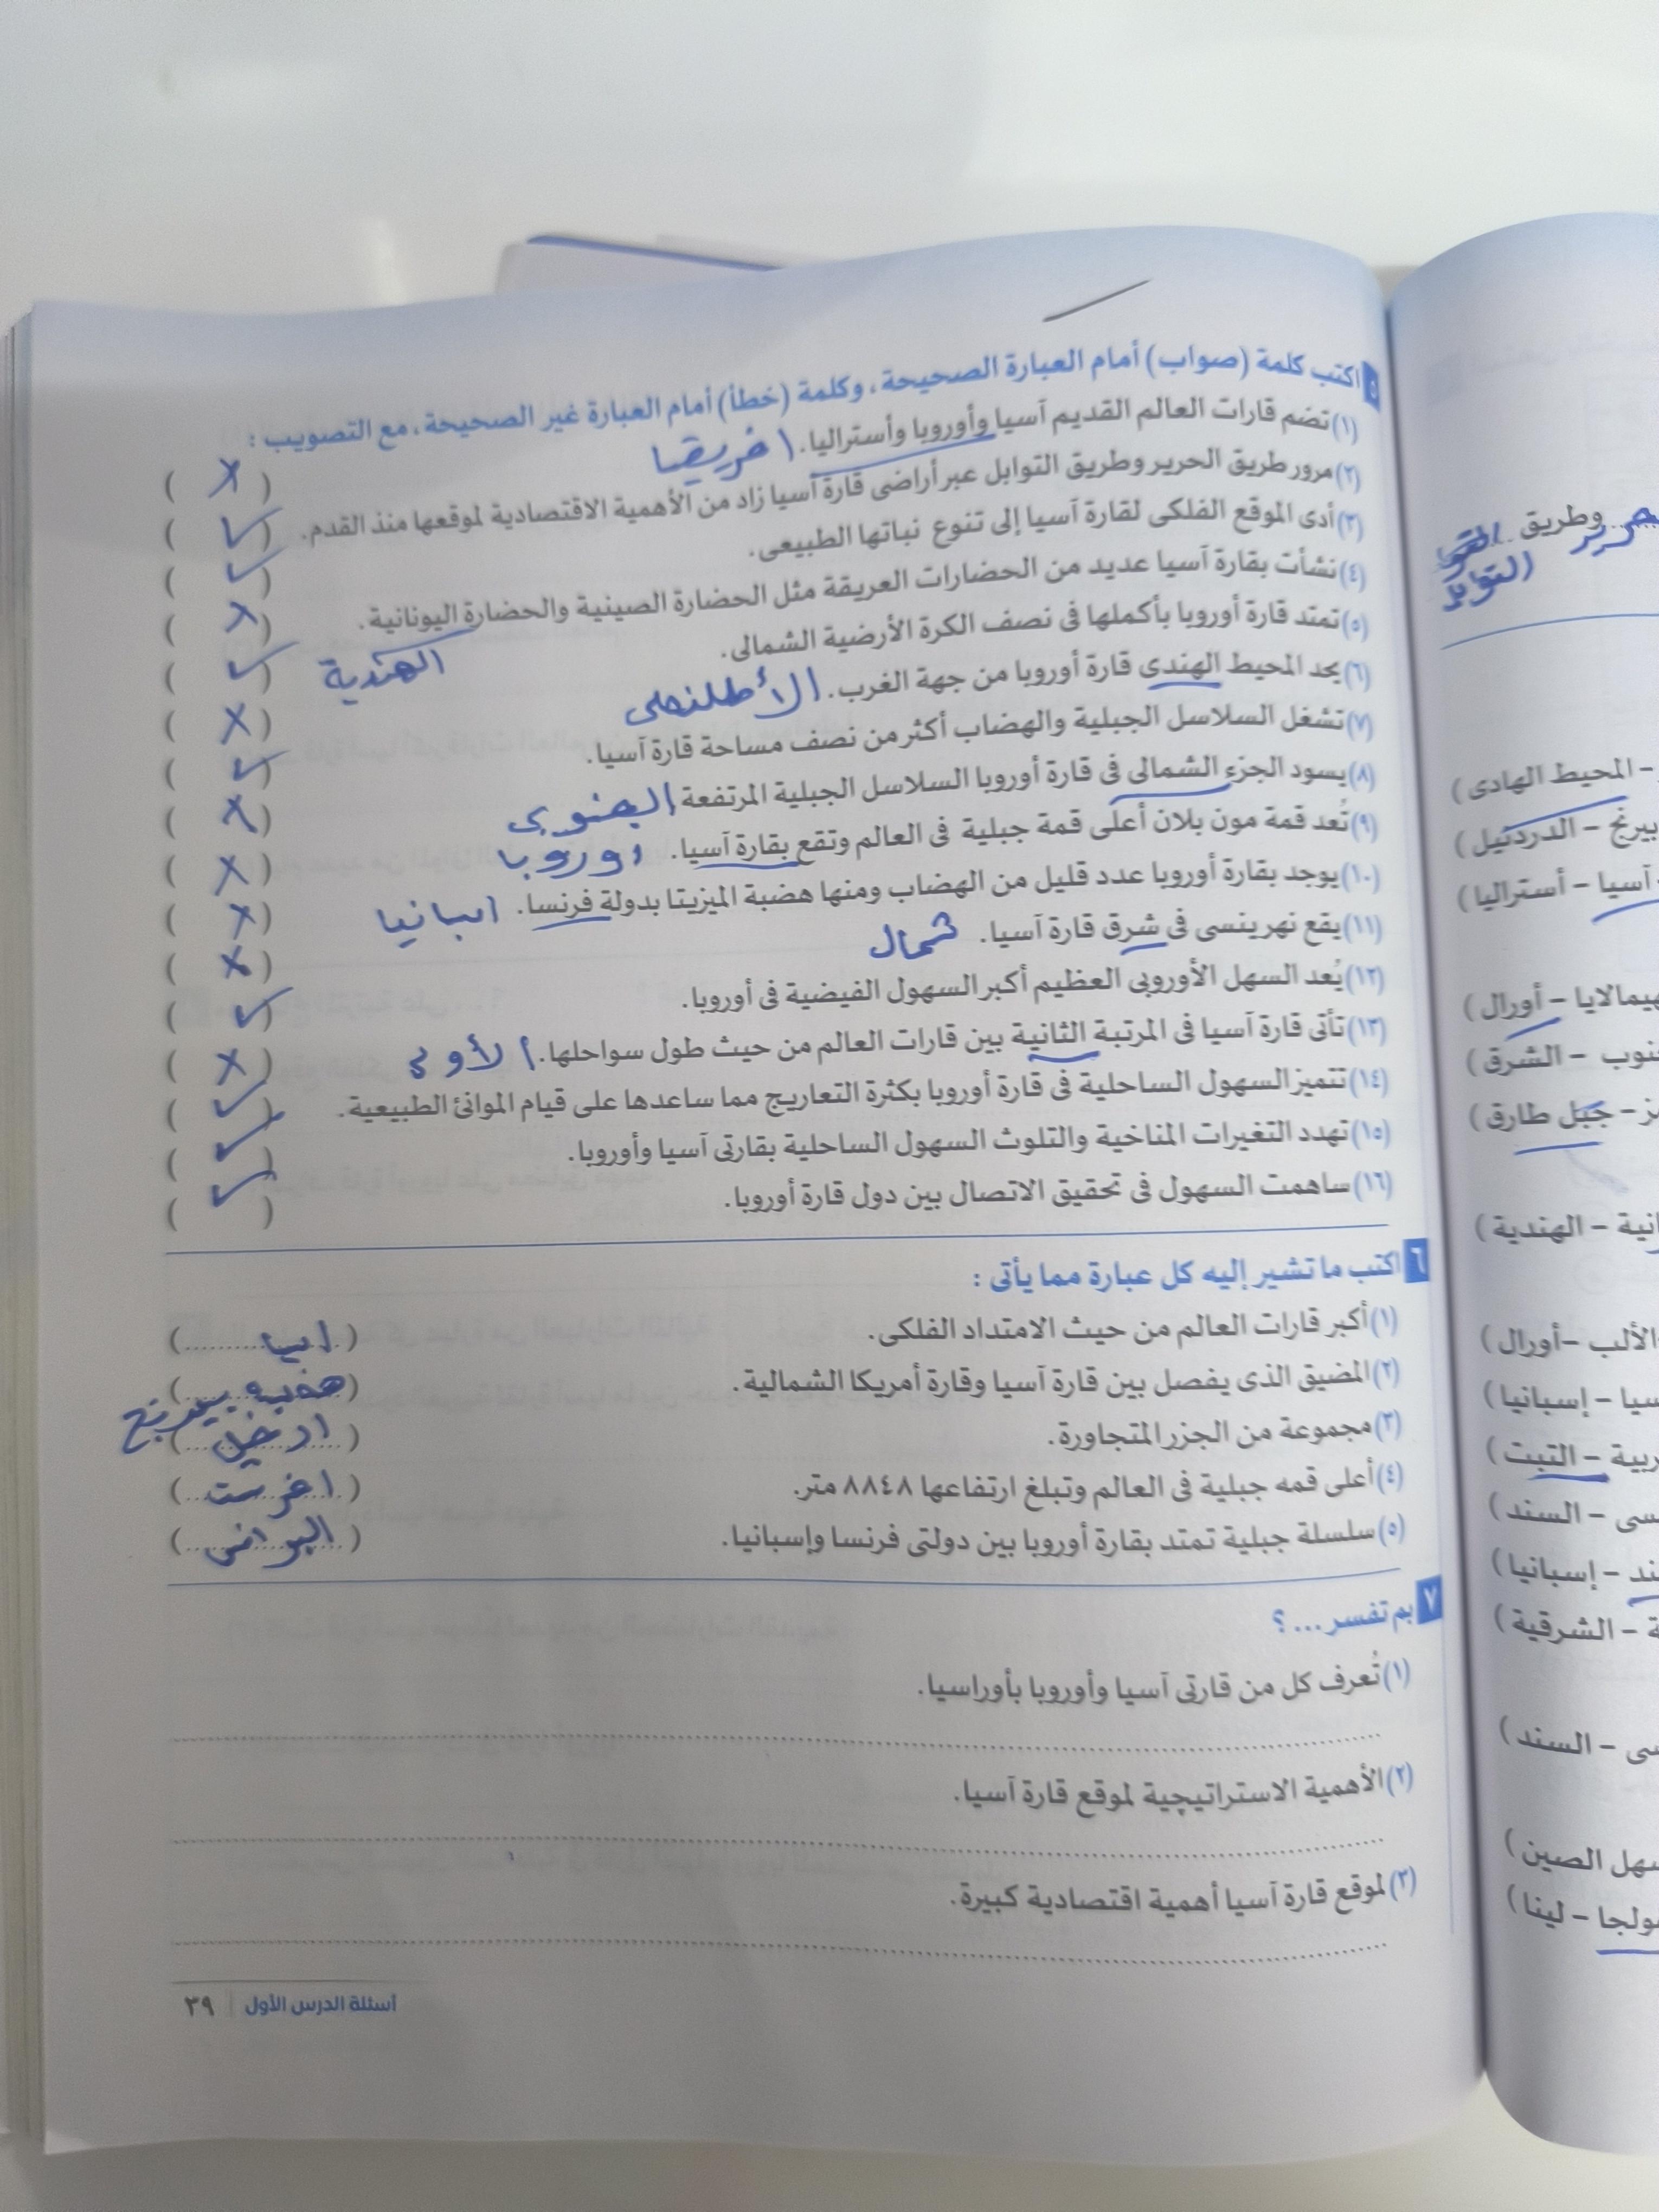 اكتب كلمة (صواب) أمام العبارة الصحيحة، وكلمة (خطأ) أمام العبارة غير الصحيحة، مع التصويب :
(١) تضم قارات العالم القديم آسيا وأوروبا وأستراليا. افريقيا ( X )
(٢) مرور طريق الحرير وطريق التوابل عبر أراضى قارة آسيا زاد من الأهمية الاقتصادية لموقعها منذ القدم. ( ✓ )
(٣) أدى الموقع الفلكى لقارة آسيا إلى تنوع نباتها الطبيعى. ( ✓ )
(٤) نشأت بقارة آسيا عديد من الحضارات العريقة مثل الحضارة الصينية والحضارة اليونانية. ( X )
الهندية
(٥) تمتد قارة أوروبا بأكملها فى نصف الكرة الأرضية الشمالى. ( ✓ )
(٦) يحد المحيط الهندى قارة أوروبا من جهة الغرب. الأطلنطى ( X )
(٧) تشغل السلاسل الجبلية والهضاب أكثر من نصف مساحة قارة آسيا. ( ✓ )
(٨) يسود الجزء الشمالى فى قارة أوروبا السلاسل الجبلية المرتفعة الجنوبى ( X )
(٩) تُعد قمة مون بلان أعلى قمة جبلية فى العالم وتقع بقارة آسيا. اوروبا ( X )
(١٠) يوجد بقارة أوروبا عدد قليل من الهضاب ومنها هضبة الميزيتا بدولة فرنسا. اسبانيا ( X )
(١١) يقع نهر ينسى فى شرق قارة آسيا. شمال ( X )
(١٢) يُعد السهل الأوروبى العظيم أكبر السهول الفيضية فى أوروبا. ( ✓ )
(١٣) تأتى قارة آسيا فى المرتبة الثانية بين قارات العالم من حيث طول سواحلها. الأولى ( X )
(١٤) تتميز السهول الساحلية فى قارة أوروبا بكثرة التعاريج مما ساعدها على قيام الموانئ الطبيعية. ( ✓ )
(١٥) تهدد التغيرات المناخية والتلوث السهول الساحلية بقارتى آسيا وأوروبا. ( ✓ )
(١٦) ساهمت السهول فى تحقيق الاتصال بين دول قارة أوروبا. ( ✓ )
٦ اكتب ما تشير إليه كل عبارة مما يأتى :
(١) أكبر قارات العالم من حيث الامتداد الفلكى. ( اسيا )
(٢) المضيق الذى يفصل بين قارة آسيا وقارة أمريكا الشمالية. ( هضبه بيرنج )
(٣) مجموعة من الجزر المتجاورة. ( ارخبيل )
(٤) أعلى قمه جبلية فى العالم وتبلغ ارتفاعها ٨٨٤٨ متر. ( افرست )
(٥) سلسلة جبلية تمتد بقارة أوروبا بين دولتى فرنسا وإسبانيا. ( البرانس )
٧ بم تفسر ... ؟
(١) تُعرف كل من قارتى آسيا وأوروبا بأوراسيا.
(٢) الأهمية الاستراتيچية لموقع قارة آسيا.
(٣) لموقع قارة آسيا أهمية اقتصادية كبيرة.
أسئلة الدرس الأول | ٣٩
وطريق
التوابل
- المحيط الهادى )
بيرنج - الدردنيل )
آسيا - أستراليا )
- أورال )
- الشرق )
- جبل طارق )
- الهندية )
الألب - أورال )
- إسبانيا )
- التبت )
- السند )
- إسبانيا )
- الشرقية )
- السند )
سهل الصين )
- لينا )